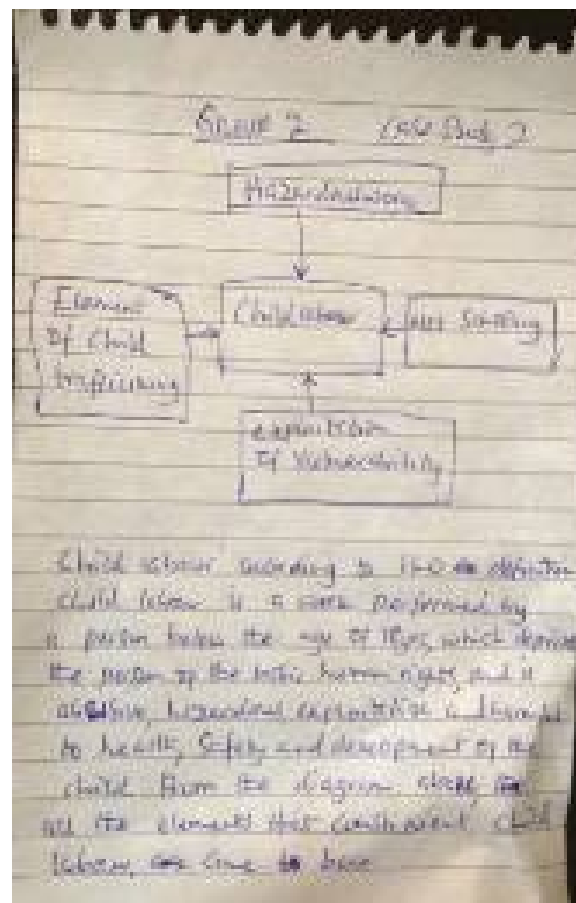 Group 2 Case Study 2
Hazardous
Element
Of Child
trafficking
Child labour
not Schooling
exploitation
Of Vulnerability
Child labour according to ILO definition
Child labour is a work performed by
a person below the age of 18yrs, which deprive
the person of the basic human rights, and is
abusive, hazardous exploitative
to health, Safety and development of the
child. From the diagram above,
all the elements that child
labour, come to